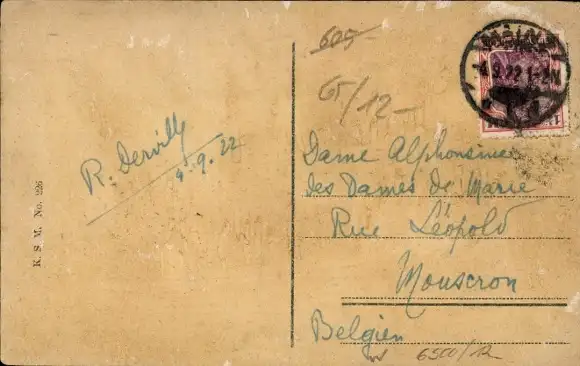 K. S. M. No. 926
R. Dervilly
4.9.22
605
65/12-
MAINZ
4.9.22 1-2N
Dame Alphonsine
des Dames de Marie
Rue Léopold
Mouscron
Belgien
6500/12